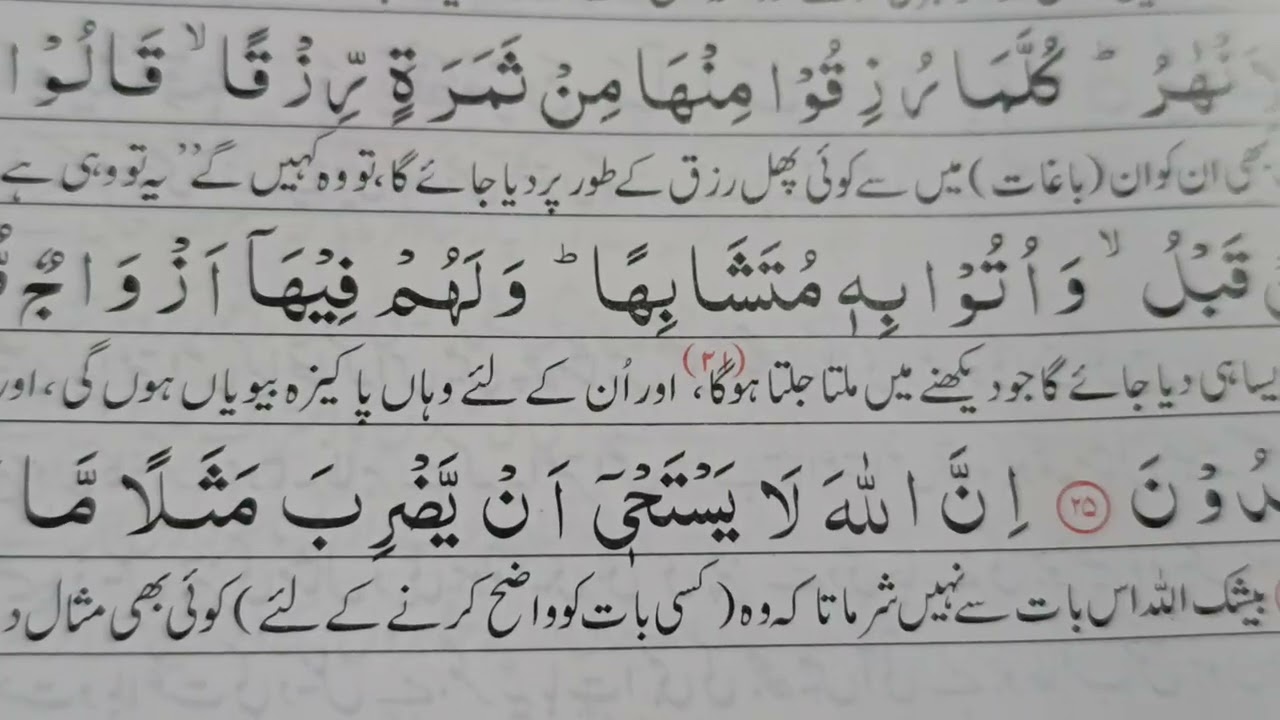 نْهٰرُ ؕ كُلَّمَا رُزِقُوْا مِنْهَا مِنْ ثَمَرَةٍ رِّزْقًا ۙ قَالُوْا
بھی ان کو ان (باغات) میں سے کوئی پھل رزق کے طور پر دیا جائے گا، تو وہ کہیں گے ”یہ تو وہی ہے
قَبْلُ ۙ وَاُتُوْا بِهٖ مُتَشَابِهًا ؕ وَلَهُمْ فِيْهَآ اَزْوَاجٌ
یسا ہی دیا جائے گا جو دیکھنے میں ملتا جلتا ہوگا، (۲۱) اور اُن کے لئے وہاں پاکیزہ بیویاں ہوں گی، اور
دُوْنَ ۲۵ اِنَّ اللّٰهَ لَا يَسْتَحْيٖٓ اَنْ يَّضْرِبَ مَثَلًا مَّا
بیشک اللہ اس بات سے نہیں شرماتا کہ وہ (کسی بات کو واضح کرنے کے لئے) کوئی بھی مثال د